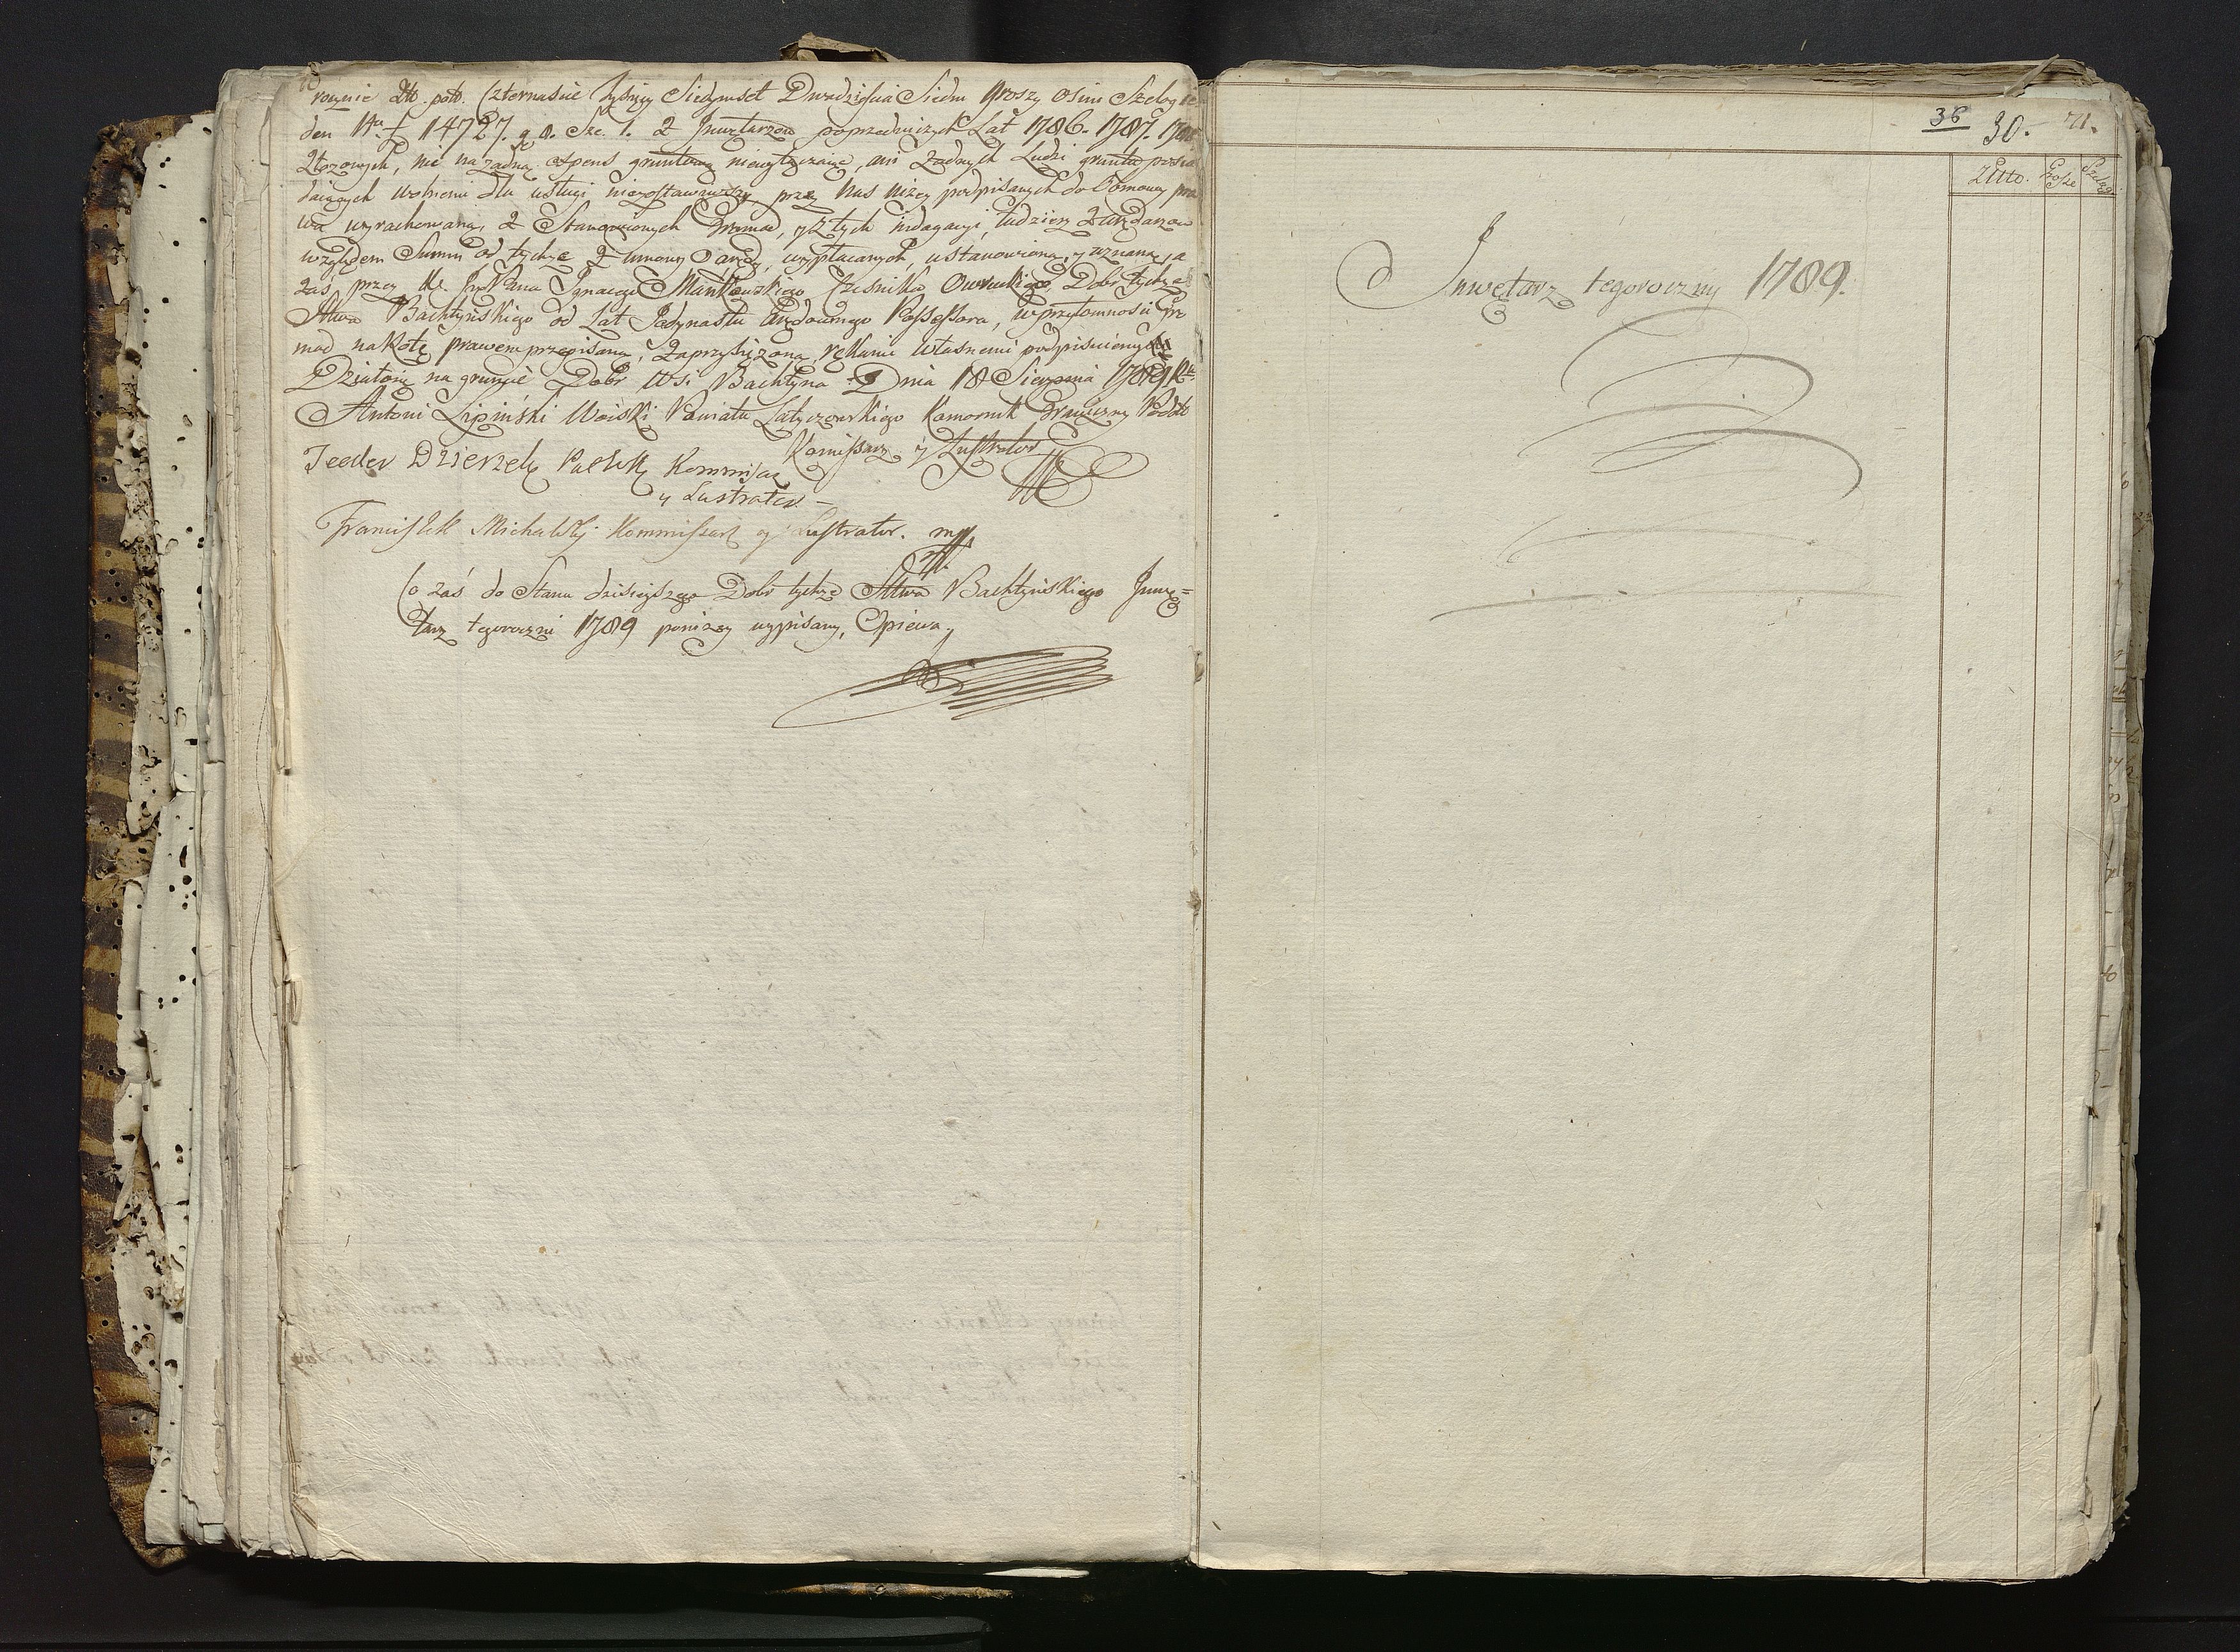 rocznie Złł. pols. Czternaście Tysięcy Siedymset Dwadzieścia Siedm Groszy Osim Szelog ie
den N° f 14727. g. 8. Sze. 1. Z Jnwętarzow poprzedniczych Lat 1786. 1787. 1788
Złozonych, nic na zadną expens gruntową niewytrącaiąc, ani zadnych Ludzi grunta posia
daiących wolnemi dla usługi niezostawuiącą, przez Nas nizey podpisanych do Obmowy pra
wa wyrachowaną, z Stanowionych Gromad, y z tych indagacyi, tudziesz z arędarzow
względem Summ od tychże z umowy Aręd, wypłacanych, ustanowioną, y uznaną, a
zas przez W. Jmć Pana Jgnacego Mańkowskiego Cześnika Owruckiego, Dobr tychze
Sttwa Bachtyńskiego od Lat Jedynastu Arędownego Possessora, w przytomności Gro
mad na Rotę prawem przepisaną, Zaprzysięzoną, rękami własnemi podpisuiemy
Działo się na gruncie Dobr Wsi Bachtyna Dnia 18 Sierpnia 1789 Rku
Antoni Lipiński Woiski Powiatu Latyczewskiego Komornik Graniczny Podol
Komissarz y Lustrator
Teodor Dzierzek Kommisarz
y Lustrator
Franciszek Michalski Kommissarz y Lustrator. mp
Co zaś do Stanu dzisieyszego Dobr tychże Sttwa Bachtyńskiego Jnwę=
tarz tegoroczni 1789 ponizey wypisany, Opiewa.
36 30. 71.
Złłto. Grosze Szeląg
Jnwętarz tegoroczny 1789.